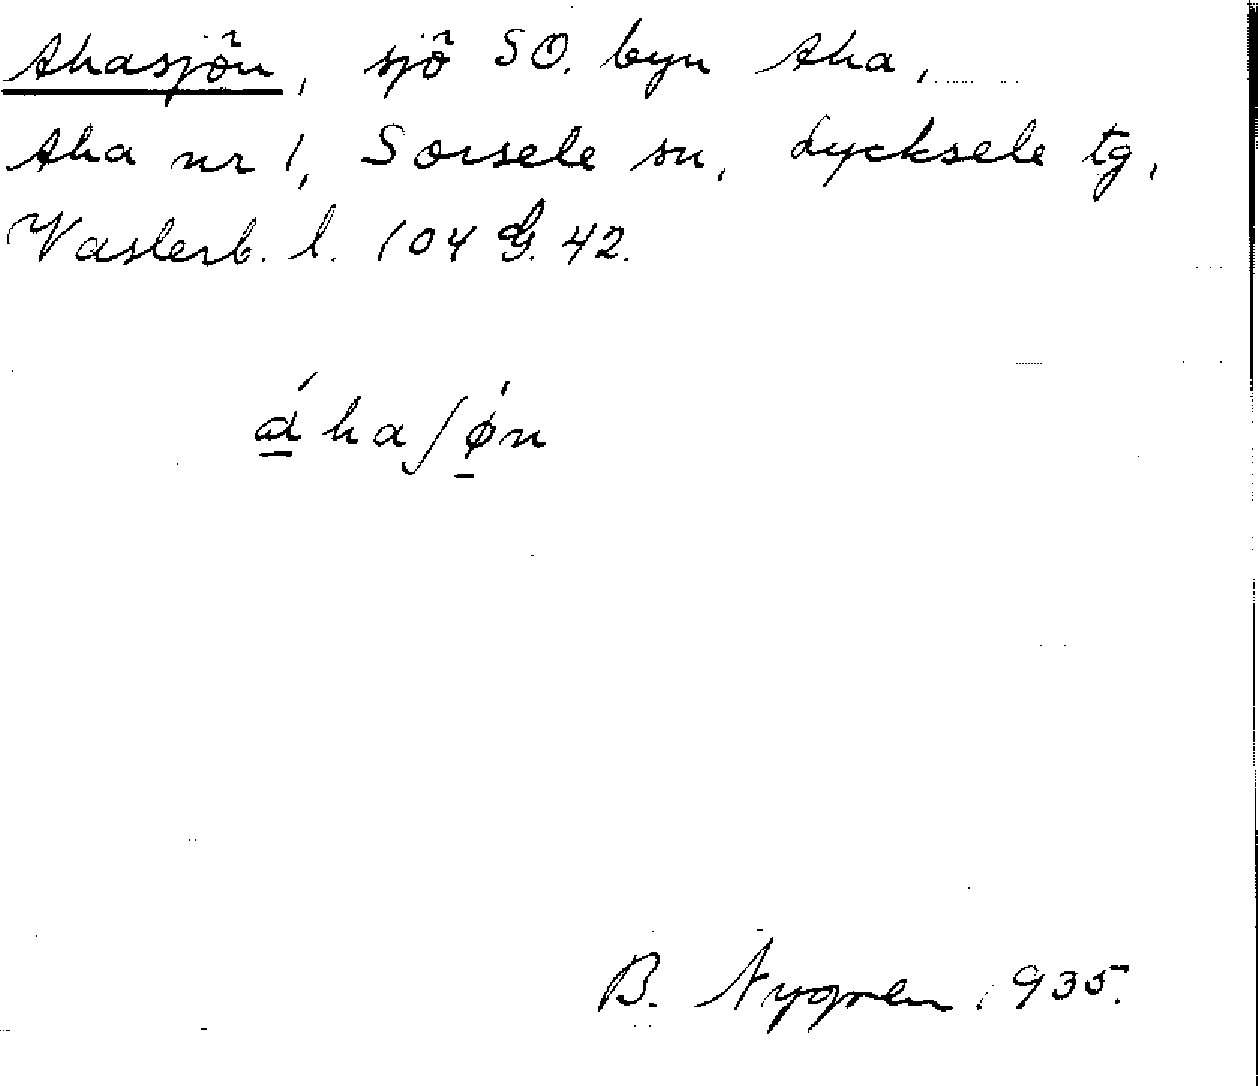 Ahasjön, sjö SO. byn Aha,
Aha nr 1, Sorsele sn, Lycksele tg,
Västerb. l. 104 G. 42.
áhaʃø̀n
B. Nygren 1935.